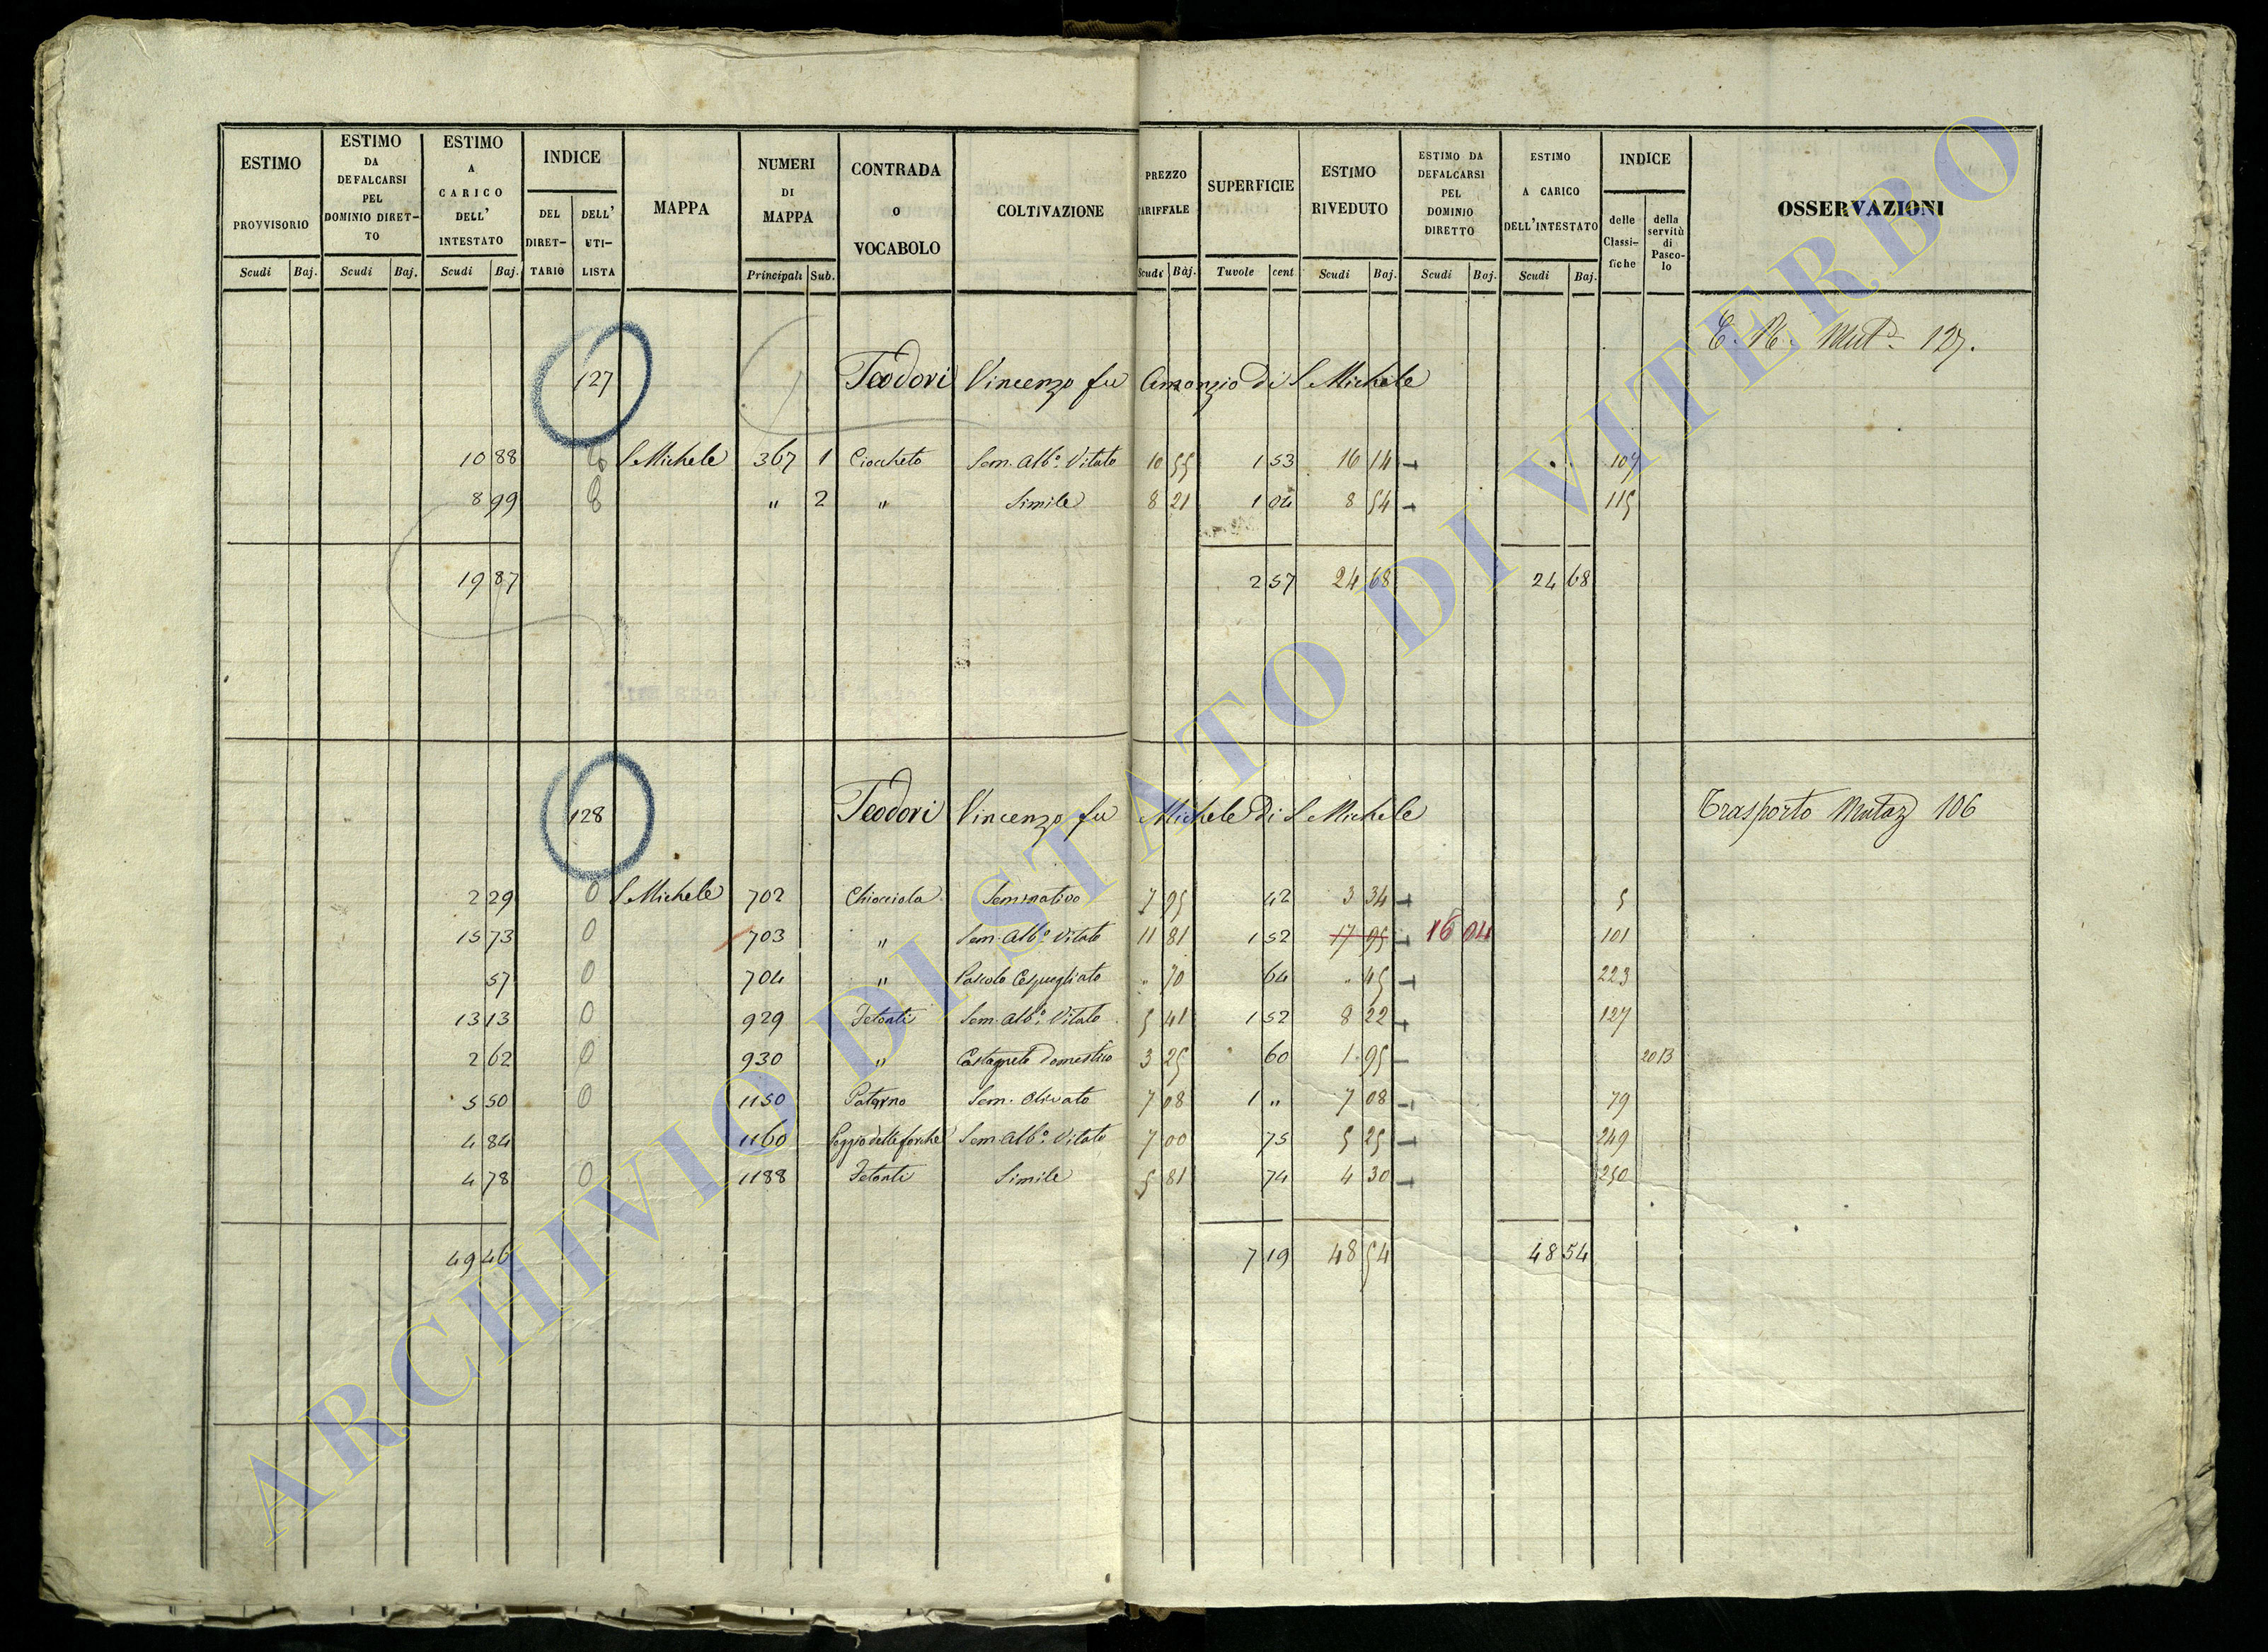 ESTIMO PROVVISORIO Scudi Baj.
ESTIMO DA DEFALCARSI PEL DOMINIO DIRETTO Scudi Baj.
ESTIMO A CARICO DELL' INTESTATO Scudi Baj.
INDICE DEL DIRETTARIO DELL' UTILISTA
MAPPA
NUMERI DI MAPPA Principali Sub.
CONTRADA o VOCABOLO
COLTIVAZIONE
PREZZO TARIFFALE Scudi Baj.
SUPERFICIE Tavole cent
ESTIMO RIVEDUTO Scudi Baj.
ESTIMO DA DEFALCARSI PEL DOMINIO DIRETTO Scudi Baj.
ESTIMO A CARICO DELL'INTESTATO Scudi Baj.
INDICE delle Classifiche della servitù di Pascolo
OSSERVAZIONI
127.
127 Teodori Vincenzo fu di S Michele
10 88 S Michele 367 1 Ciocheto Sem. Alb.o Vitato 10 55 1 53 16 14 107
8 99 " 2 " Simile 8 21 1 04 8 54 115
19 87 2 57 24 68 24 68
128 Teodori Vincenzo fu Michele di S Michele Trasporto Mutaz 106
2 29 0 S Michele 702 Chiocciola Seminativo 7 95 42 3 34 5
15 73 0 703 " Sem. Alb.o Vitato 11 81 1 52 17 95 16 04 101
57 0 704 " Pascolo Cespugliato " 70 64 " 45 223
13 13 0 929 Sem. Alb.o Vitato 5 41 1 52 8 22 127
2 62 0 930 " Castagneto domestico 3 25 60 1 95 2013
5 50 0 1150 Paterno Sem. Olivato 7 08 1 " 7 08 79
4 84 1160 Poggio delle forche Sem. Alb.o Vitato 7 00 75 5 25 249
4 78 0 1188 Simile 5 81 74 4 30 250
49 46 7 19 48 54 48 54
ARCHIVIO DI STATO DI VITERBO